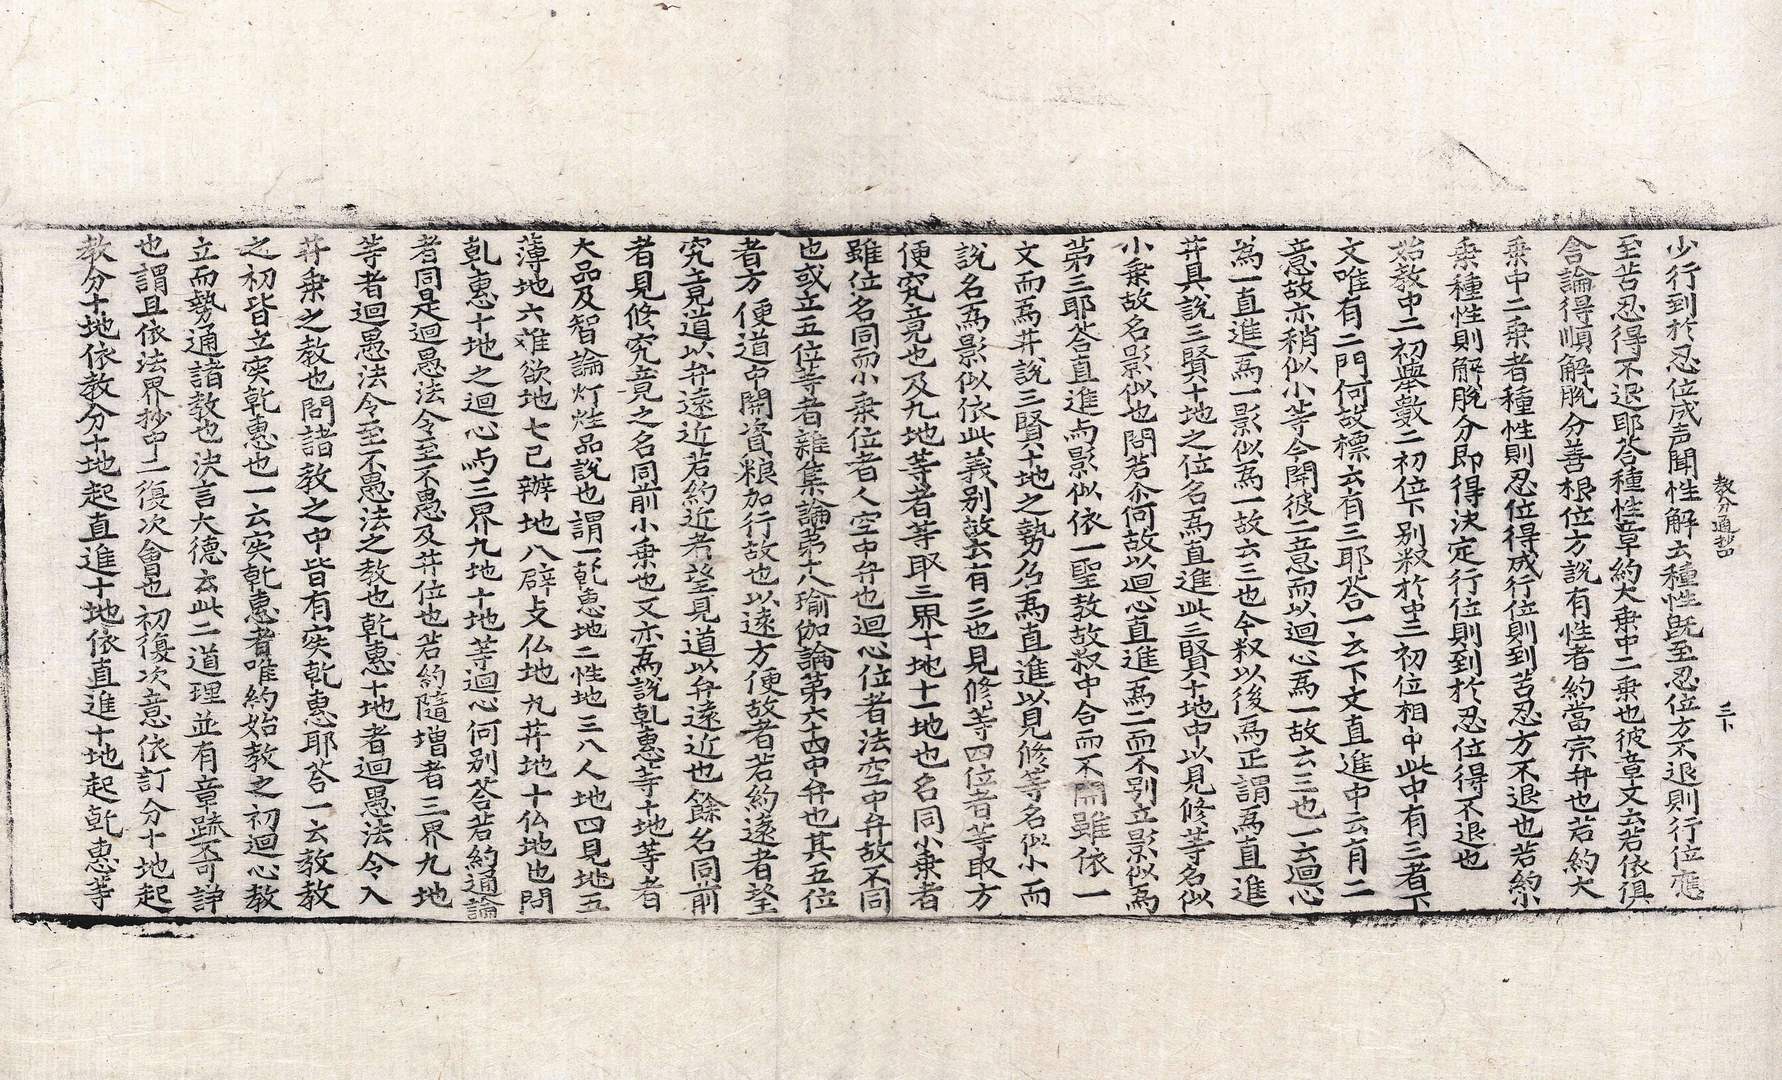 教分通抄口
三卜
少行到於忍位成声聞性解云種性既至忍位方不退則行位應
至苦忍得不退耶荅種性章約大乗中二乗也彼章文云若依俱
舎論得順解脫分善根位方說有性者約當宗弁也若約大
乗中二乗者種性則忍位得成行位則到苦忍方不退也若約小
乗種性則解脫分即得決定行位則到於忍位得不退也
始教中二初舉數二初位下別釈於中三初位相中此中有三者下
文唯有二門何故標云有三耶荅一云下文直進中云有二
意故亦稍似小等今開彼二意而以迴心為一故云三也一云迴心
為一直進為一影似為一故云三也今釈以後為正謂為直進
井具說三賢十地之位名為直進此三賢十地中以見修等名似
小乗故名影似也問若尒何故以迴心直進為二而不別立影似為
第三耶荅直進与影似依一聖教故釈中合而不開雖依一
文而為井說三賢十地之勢乃為直進以見修等名似小而
說名為影似依此義別故云有三也見修等四位者等取方
便究竟也及九地等者等取三界十地十一地也名同小乗者
雖位名同而小乗位者人空中弁也迴心位者法空中弁故不同
也或立五位等者雜集論第八瑜伽論第六十四中弁也其五位
者方便道中開資粮加行故也以遠方便故者若約遠者望
究竟道以弁遠近若約近者望見道以弁遠近也餘名同前
者見修究竟之名同前小乗也又亦為說乹惠等十地等者
大品及智論灯炷品說也謂一乹惠地二性地三八人地四見地五
薄地六难欲地七已辦地八辟支仏地九井地十仏地也問
乹惠十地之迴心与三界九地十地等迴心何別荅若約通論
者同是迴愚法令至不愚及井位也若約隨增者三界九地
等者迴愚法令至不愚法之教也乹惠十地者迴愚法令入
井乗之教也問諸教之中皆有𡨋乹惠耶荅一云教教
之初皆立𡨋乹惠也一云𡨋乹惠者唯約始教之初迴心教
立而勢通諸教也決言大德云此二道理並有章䟽不可諍
也謂且依法界抄中二復次會也初復次意依訂分十地起
教分十地依教分十地起直進十地依直進十地起乹惠等